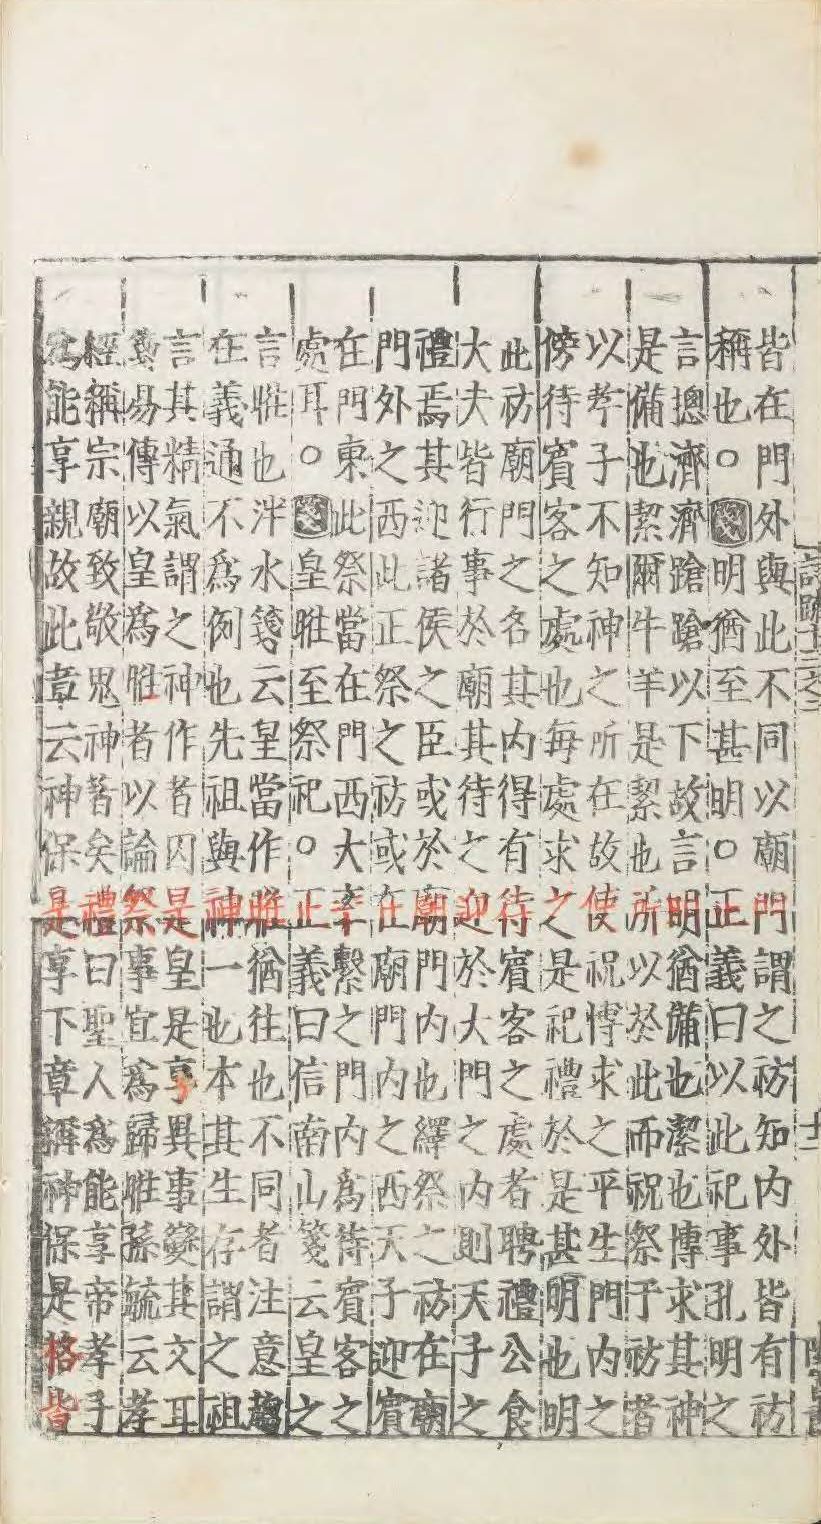 皆在門外與此不同以廟門謂之祊知内外皆有祊
稱也○箋明猶至甚明○正義曰以此祀事孔明之
言揔濟濟蹌蹌以下故言明猶備也潔也博求其神
是備也絜爾牛羊是絜也所以於此而祝祭于祊者
以孝子不知神之所在故使祝博求之平生門内之
傍待賔客之處也每處求之是祀禮於是甚明也明
此祊廟門之名其内得有待賔客之處者聘禮公食
大夫皆行事於廟其待之迎於大門之内則天子之
禮焉其迎諸侯之臣或於廟門内也繹祭之祊在廟
門外之西此正祭之祊或在廟門内之西天子迎賔
在門東此祭當在門西大率繫之門内爲待賔客之
處耳○箋皇暀至祭祀○正義曰信南山箋云皇之
言暀也泮水箋云皇當作暀猶往也不同者注意趨
在義通不爲例也先祖與神一也本其生存謂之祖
言其精氣謂之神作者因是皇是享異事變其文耳
箋易傳以皇爲暀者以論祭事宜爲歸暀孫毓云孝
經稱宗廟致敬鬼神著矣禮曰聖人爲能享帝孝子
爲能享親故此章云神保是享下章稱神保是格皆